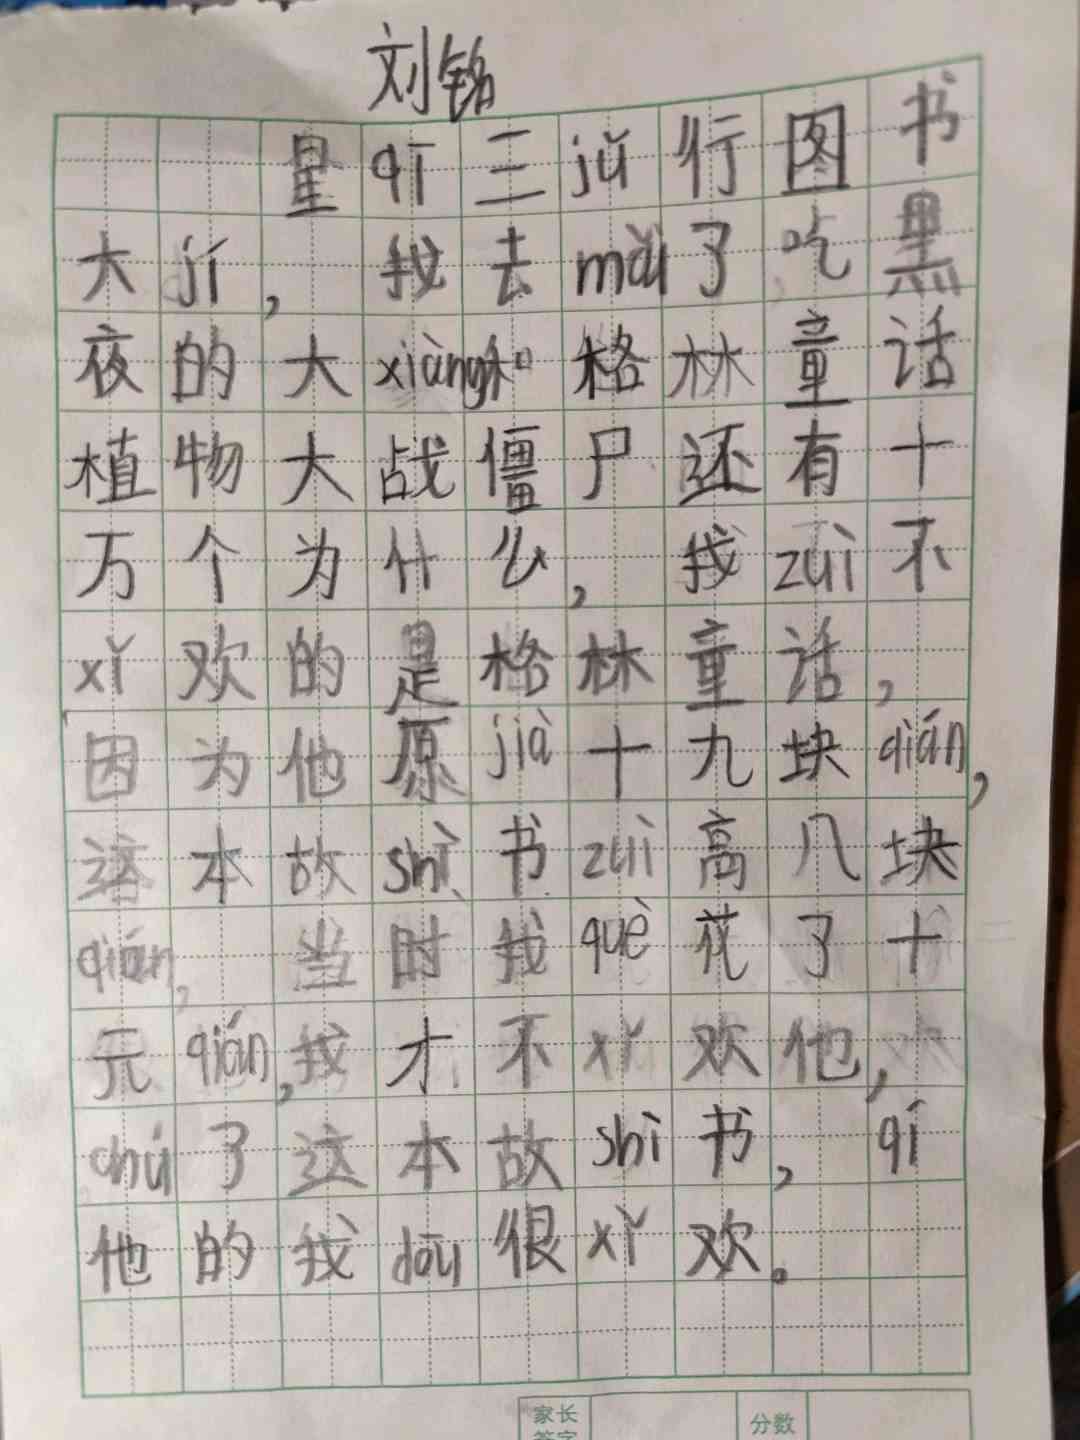 刘铭
星qī三jǔ行图书
大jí,我去mǎi了吃黑
夜的大xiàng和格林童话
植物大战僵尸还有十
万个为什么,我zuì不
xǐ欢的是格林童话,
因为他原jià十九块qián,
这本故shì书zuì高八块
qián,当时我què花了十
元qián,我才不xǐ欢他,
chú了这本故shì书,qí
他的我dōu很xǐ欢。
家长
签字
分数